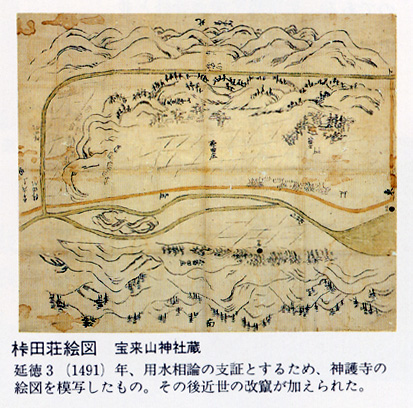 桛田荘絵図 宝来山神社蔵
延徳3(1491)年、用水相論の支証とするため、神護寺の
絵図を模写したもの。その後近世の改竄が加えられた。